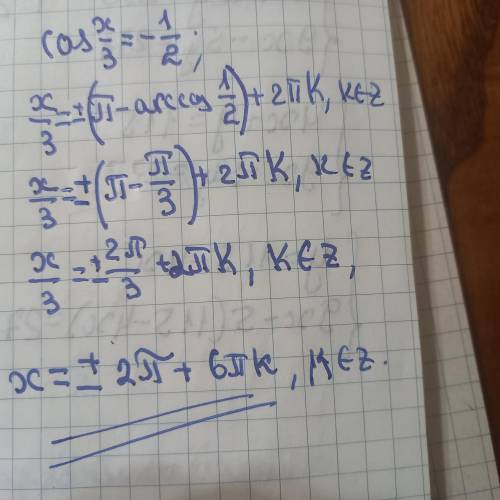 cos x/3 = -1/2;
x/3 = ±(π - arccos 1/2) + 2πK, K∈Z
x/3 = ±(π - π/3) + 2πK, K∈Z
x/3 = ± 2π/3 + 2πK, K∈Z,
x = ± 2π + 6πK, K∈Z.